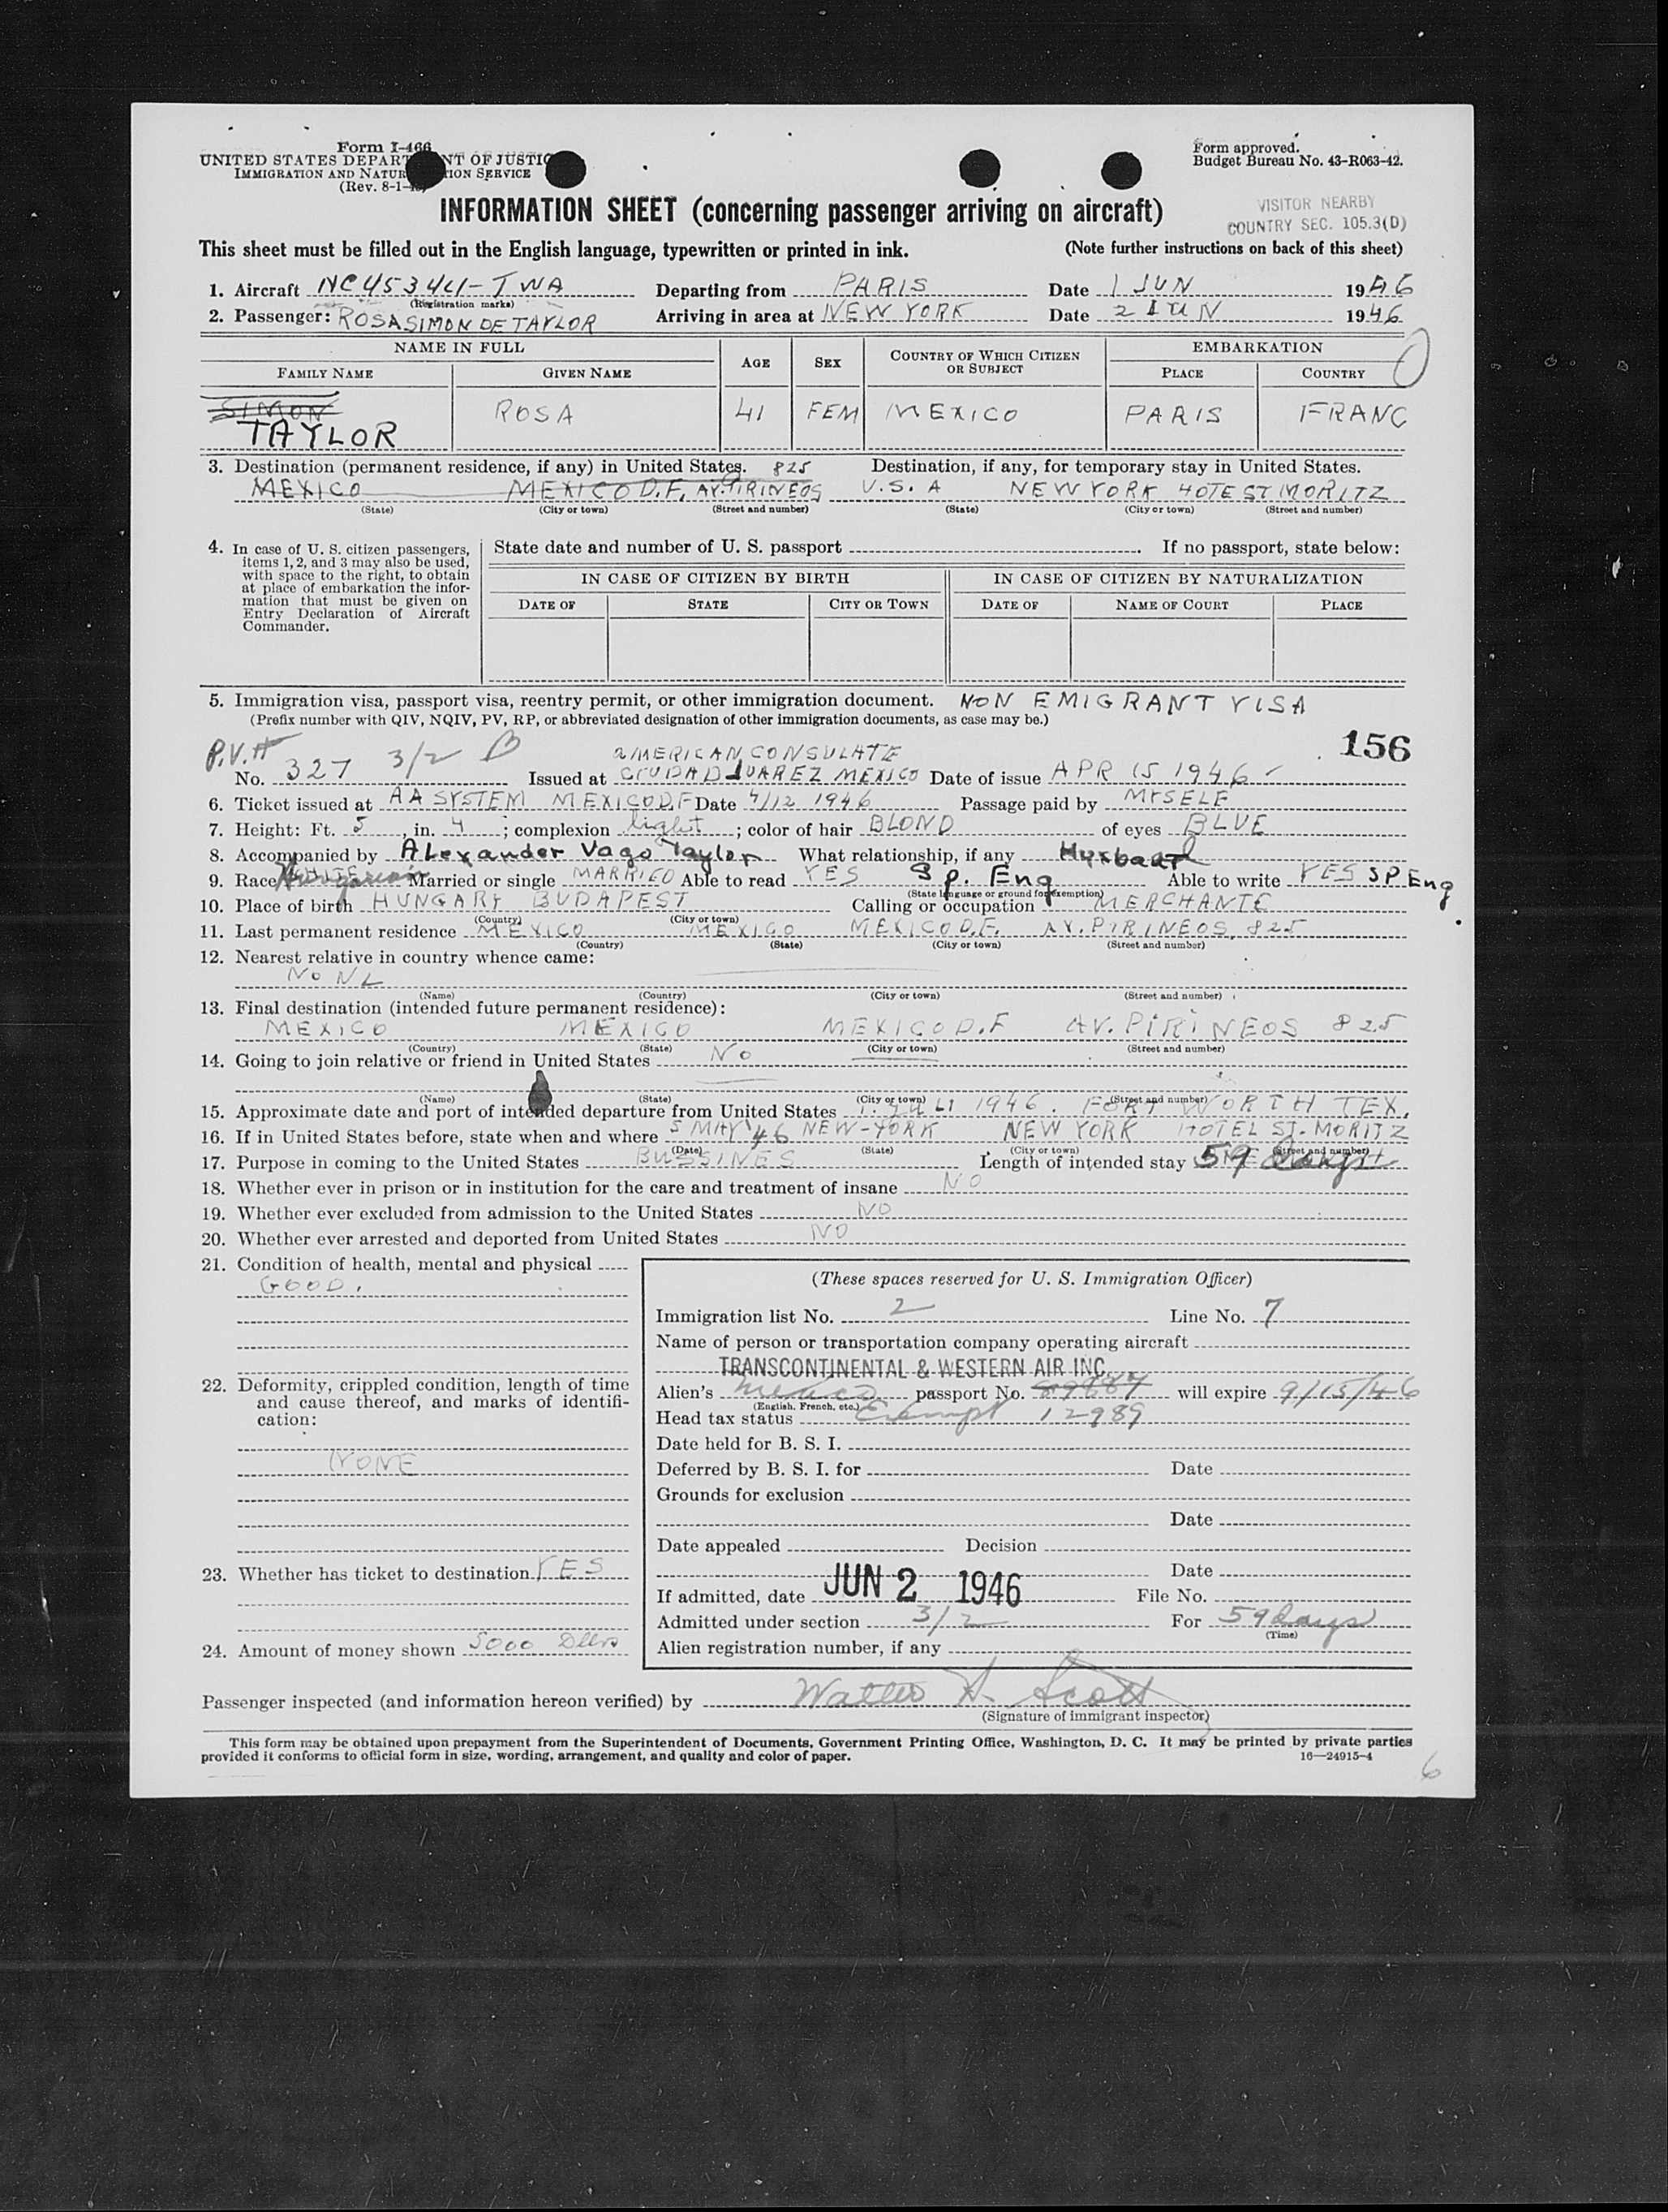 Form I-466
UNITED STATES DEPARTMENT OF JUSTICE
IMMIGRATION AND NATURALIZATION SERVICE
(Rev. 8-1-
Form approved.
Budget Bureau No. 43-R063-42.
INFORMATION SHEET (concerning passenger arriving on aircraft)
VISITOR NEARBY
COUNTRY SEC. 105.3(D)
This sheet must be filled out in the English language, typewritten or printed in ink. (Note further instructions on back of this sheet)
1. Aircraft NC45344-TWA Departing from PARIS Date 1 JUN 1946
(Registration marks)
2. Passenger: ROSA SIMON DE TAYLOR Arriving in area at NEW YORK Date 2 JUN 1946
NAME IN FULL AGE SEX COUNTRY OF WHICH CITIZEN OR SUBJECT EMBARKATION
FAMILY NAME GIVEN NAME PLACE COUNTRY
SIMON
TAYLOR ROSA 41 FEM MEXICO PARIS FRANC
3. Destination (permanent residence, if any) in United States. 825 Destination, if any, for temporary stay in United States.
MEXICO MEXICO D.F. AV. PIRINEOS U.S.A NEW YORK HOTE ST MORITZ
(State) (City or town) (Street and number) (State) (City or town) (Street and number)
4. In case of U. S. citizen passengers, items 1, 2, and 3 may also be used, with space to the right, to obtain at place of embarkation the information that must be given on Entry Declaration of Aircraft Commander.
State date and number of U. S. passport. If no passport, state below:
IN CASE OF CITIZEN BY BIRTH IN CASE OF CITIZEN BY NATURALIZATION
DATE OF STATE CITY OR TOWN DATE OF NAME OF COURT PLACE
5. Immigration visa, passport visa, reentry permit, or other immigration document. NON EMIGRANT VISA
(Prefix number with QIV, NQIV, PV, RP, or abbreviated designation of other immigration documents, as case may be.)
156
P.V.# 3/2 B AMERICAN CONSULATE
No. 327 Issued at CIUDAD JUAREZ MEXICO Date of issue APR 15 1946
6. Ticket issued at AA SYSTEM MEXICO D.F Date 4/12 1946 Passage paid by MYSELF
7. Height: Ft. 5, in. 4; complexion light; color of hair BLOND of eyes BLUE
8. Accompanied by Alexander Vago Taylor What relationship, if any Husband
9. Race Hungarian Married or single MARRIED Able to read YES Sp. Eng Able to write YES SP Eng
(State language or ground for exemption)
10. Place of birth HUNGARY BUDAPEST Calling or occupation MERCHANTE
(Country) (City or town)
11. Last permanent residence MEXICO MEXICO MEXICO D.F. AV. PIRINEOS, 825
(Country) (State) (City or town) (Street and number)
12. Nearest relative in country whence came:
NONE
(Name) (Country) (City or town) (Street and number)
13. Final destination (intended future permanent residence):
MEXICO MEXICO MEXICO D.F AV. PIRINEOS 825
(Country) (State) (City or town) (Street and number)
14. Going to join relative or friend in United States NO
(Name) (State) (City or town) (Street and number)
15. Approximate date and port of intended departure from United States 1. JULY 1946. FORT WORTH TEX.
16. If in United States before, state when and where 5 MAY 46 NEW-YORK NEW YORK HOTEL ST. MORITZ
(Date) (State) (City or town) (Street and number)
17. Purpose in coming to the United States BUSSINES Length of intended stay 59 days
18. Whether ever in prison or in institution for the care and treatment of insane NO
19. Whether ever excluded from admission to the United States NO
20. Whether ever arrested and deported from United States NO
21. Condition of health, mental and physical
GOOD.
22. Deformity, crippled condition, length of time and cause thereof, and marks of identification:
NONE
23. Whether has ticket to destination YES
24. Amount of money shown 5000 Dllrs
(These spaces reserved for U. S. Immigration Officer)
Immigration list No. 2 Line No. 7
Name of person or transportation company operating aircraft
TRANSCONTINENTAL & WESTERN AIR INC.
Alien's Mexico passport No. will expire 9/15/46
(English, French, etc.)
Head tax status Exempt 12989
Date held for B. S. I.
Deferred by B. S. I. for Date
Grounds for exclusion
Date
Date appealed Decision
Date
If admitted, date JUN 2 1946 File No.
Admitted under section 3/2 For 59 days
(Time)
Alien registration number, if any
Passenger inspected (and information hereon verified) by Walter H. Scott
(Signature of immigrant inspector)
This form may be obtained upon prepayment from the Superintendent of Documents, Government Printing Office, Washington, D. C. It may be printed by private parties
provided it conforms to official form in size, wording, arrangement, and quality and color of paper. 16—24915-4
6